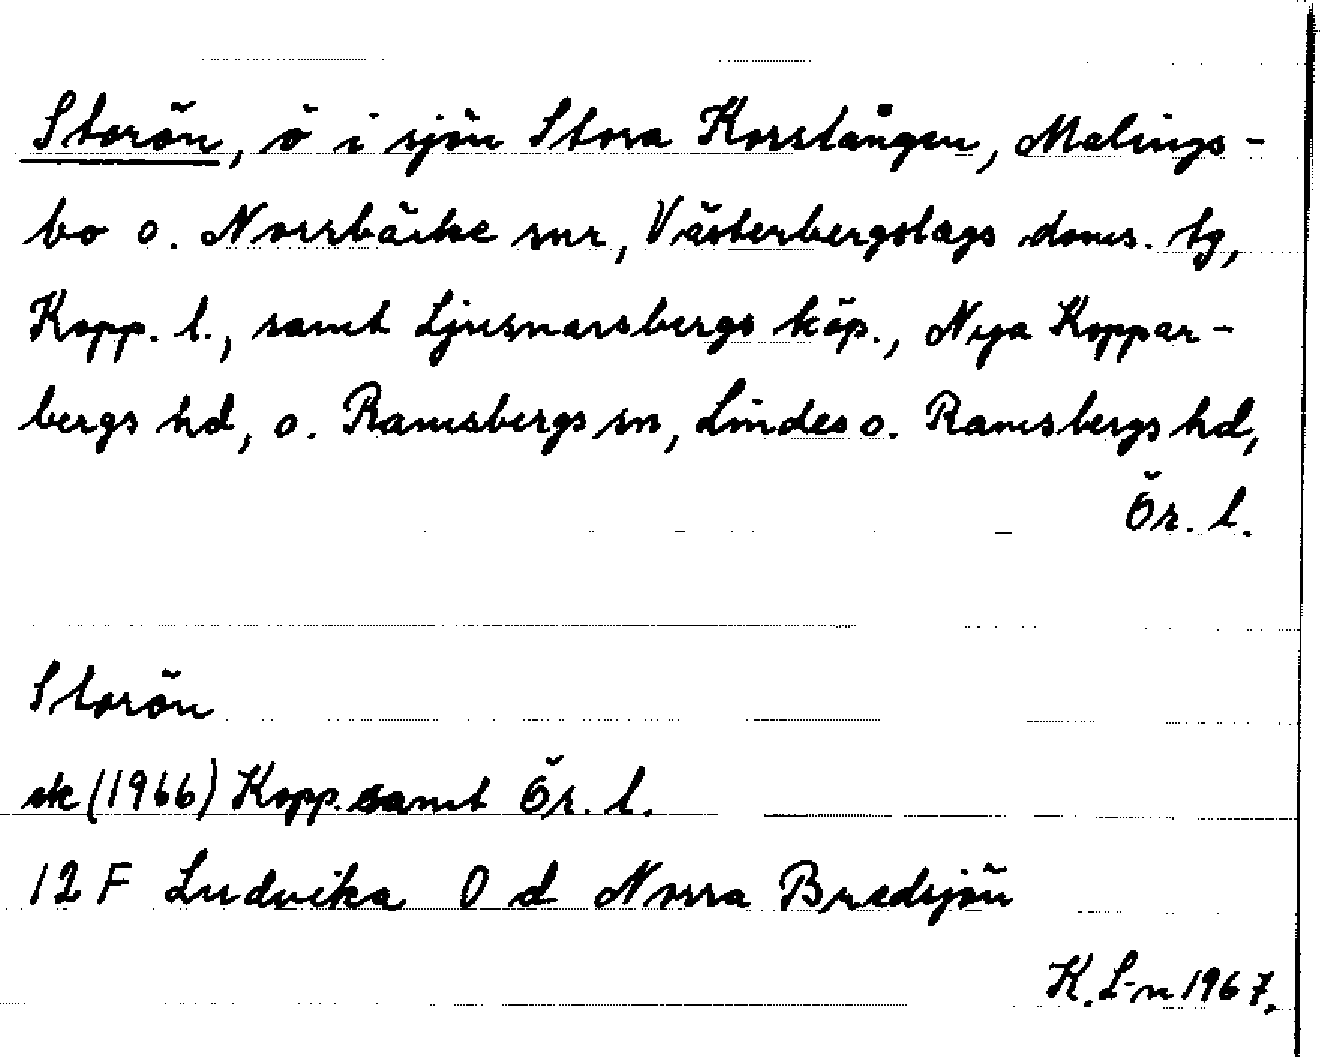 Storön, ö i sjön Stora Korslången, Malings-
bo o. Norrbärke snr, Västerbergslags doms. tg,
Kopp. l., samt Ljusnarsbergs köp., Nya Koppar-
bergs hd, o. Ramsbergs sn, Lindes o. Ramsbergs hd,
Ör. l.
Storön
ek (1966) Kopp. samt Ör. l.
12 F Ludvika 0 d Norra Bredsjön
K. L-n 1967.